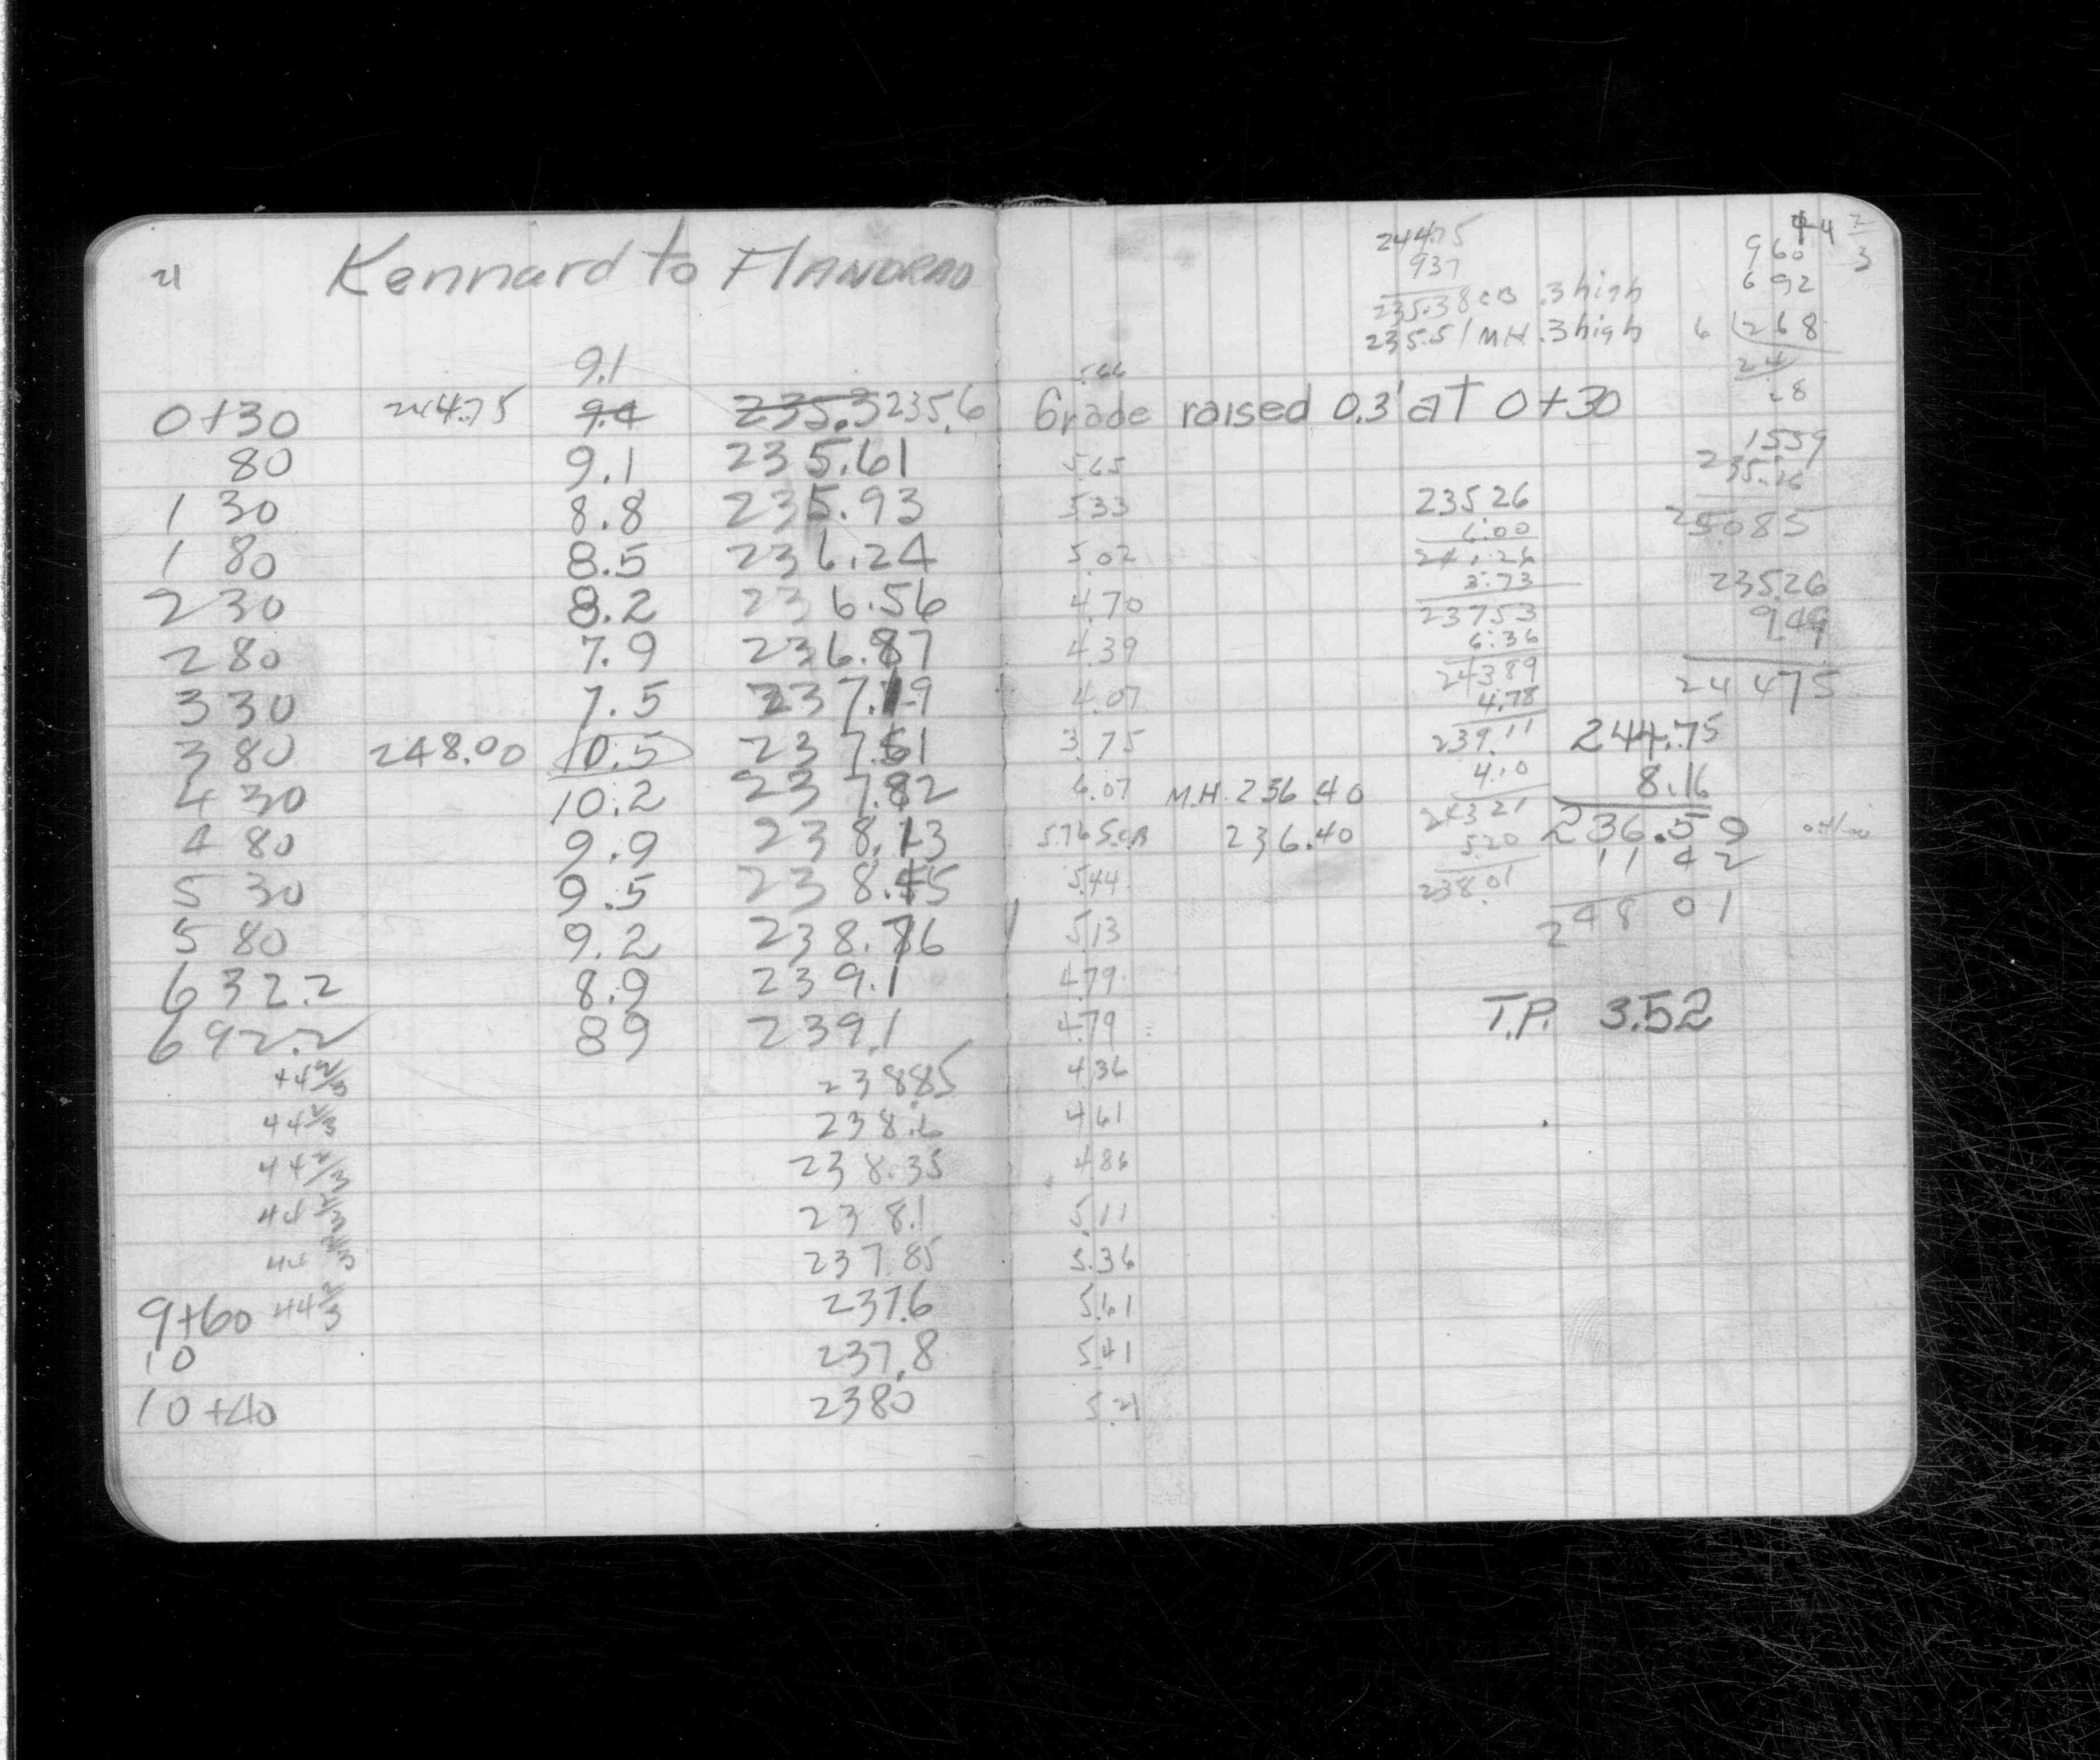 21 Kennard to Flandrau
9.1
0+30 244.75 9.4 235.3 235.6
80 9.1 235.61
1 30 8.8 235.93
1 80 8.5 236.24
2 30 8.2 236.56
2 80 7.9 236.87
3 30 7.5 237.19
3 80 248.00 10.5 237.51
4 30 10.2 237.82
4 80 9.9 238.13
5 30 9.5 238.45
5 80 9.2 238.76
6 32.2 8.9 239.1
6 92.2 89 239.1
44 2/3 238.85
44 2/3 238.6
44 2/3 238.35
44 2/3 238.1
44 2/3 237.85
9+60 44 2/3 237.6
10 237.8
10+40 2380
5.66
Grade raised 0.3' at 0+30
5.65
5.33
5.02
4.70
4.39
4.07
3.75
6.07 M.H. 236.40
5.76 S.CB 236.40
5.44
5.13
4.79
4.79
4.36
4.61
4.86
5.11
5.36
5.61
5.41
5.21
244.75
937
235.38 CB .3 high
235.51 MH .3 high
235 26
6.00
241.26
3.73
237 53
6.36
243 89
4.78
239.11
4.10
243 21
5.20
238.01
44 2/3
960
692
6 268
24
28
1559
235.26
25085
235.26
949
244 75
244.75
8.16
236.59
11 42
248 01
T.P. 3.52